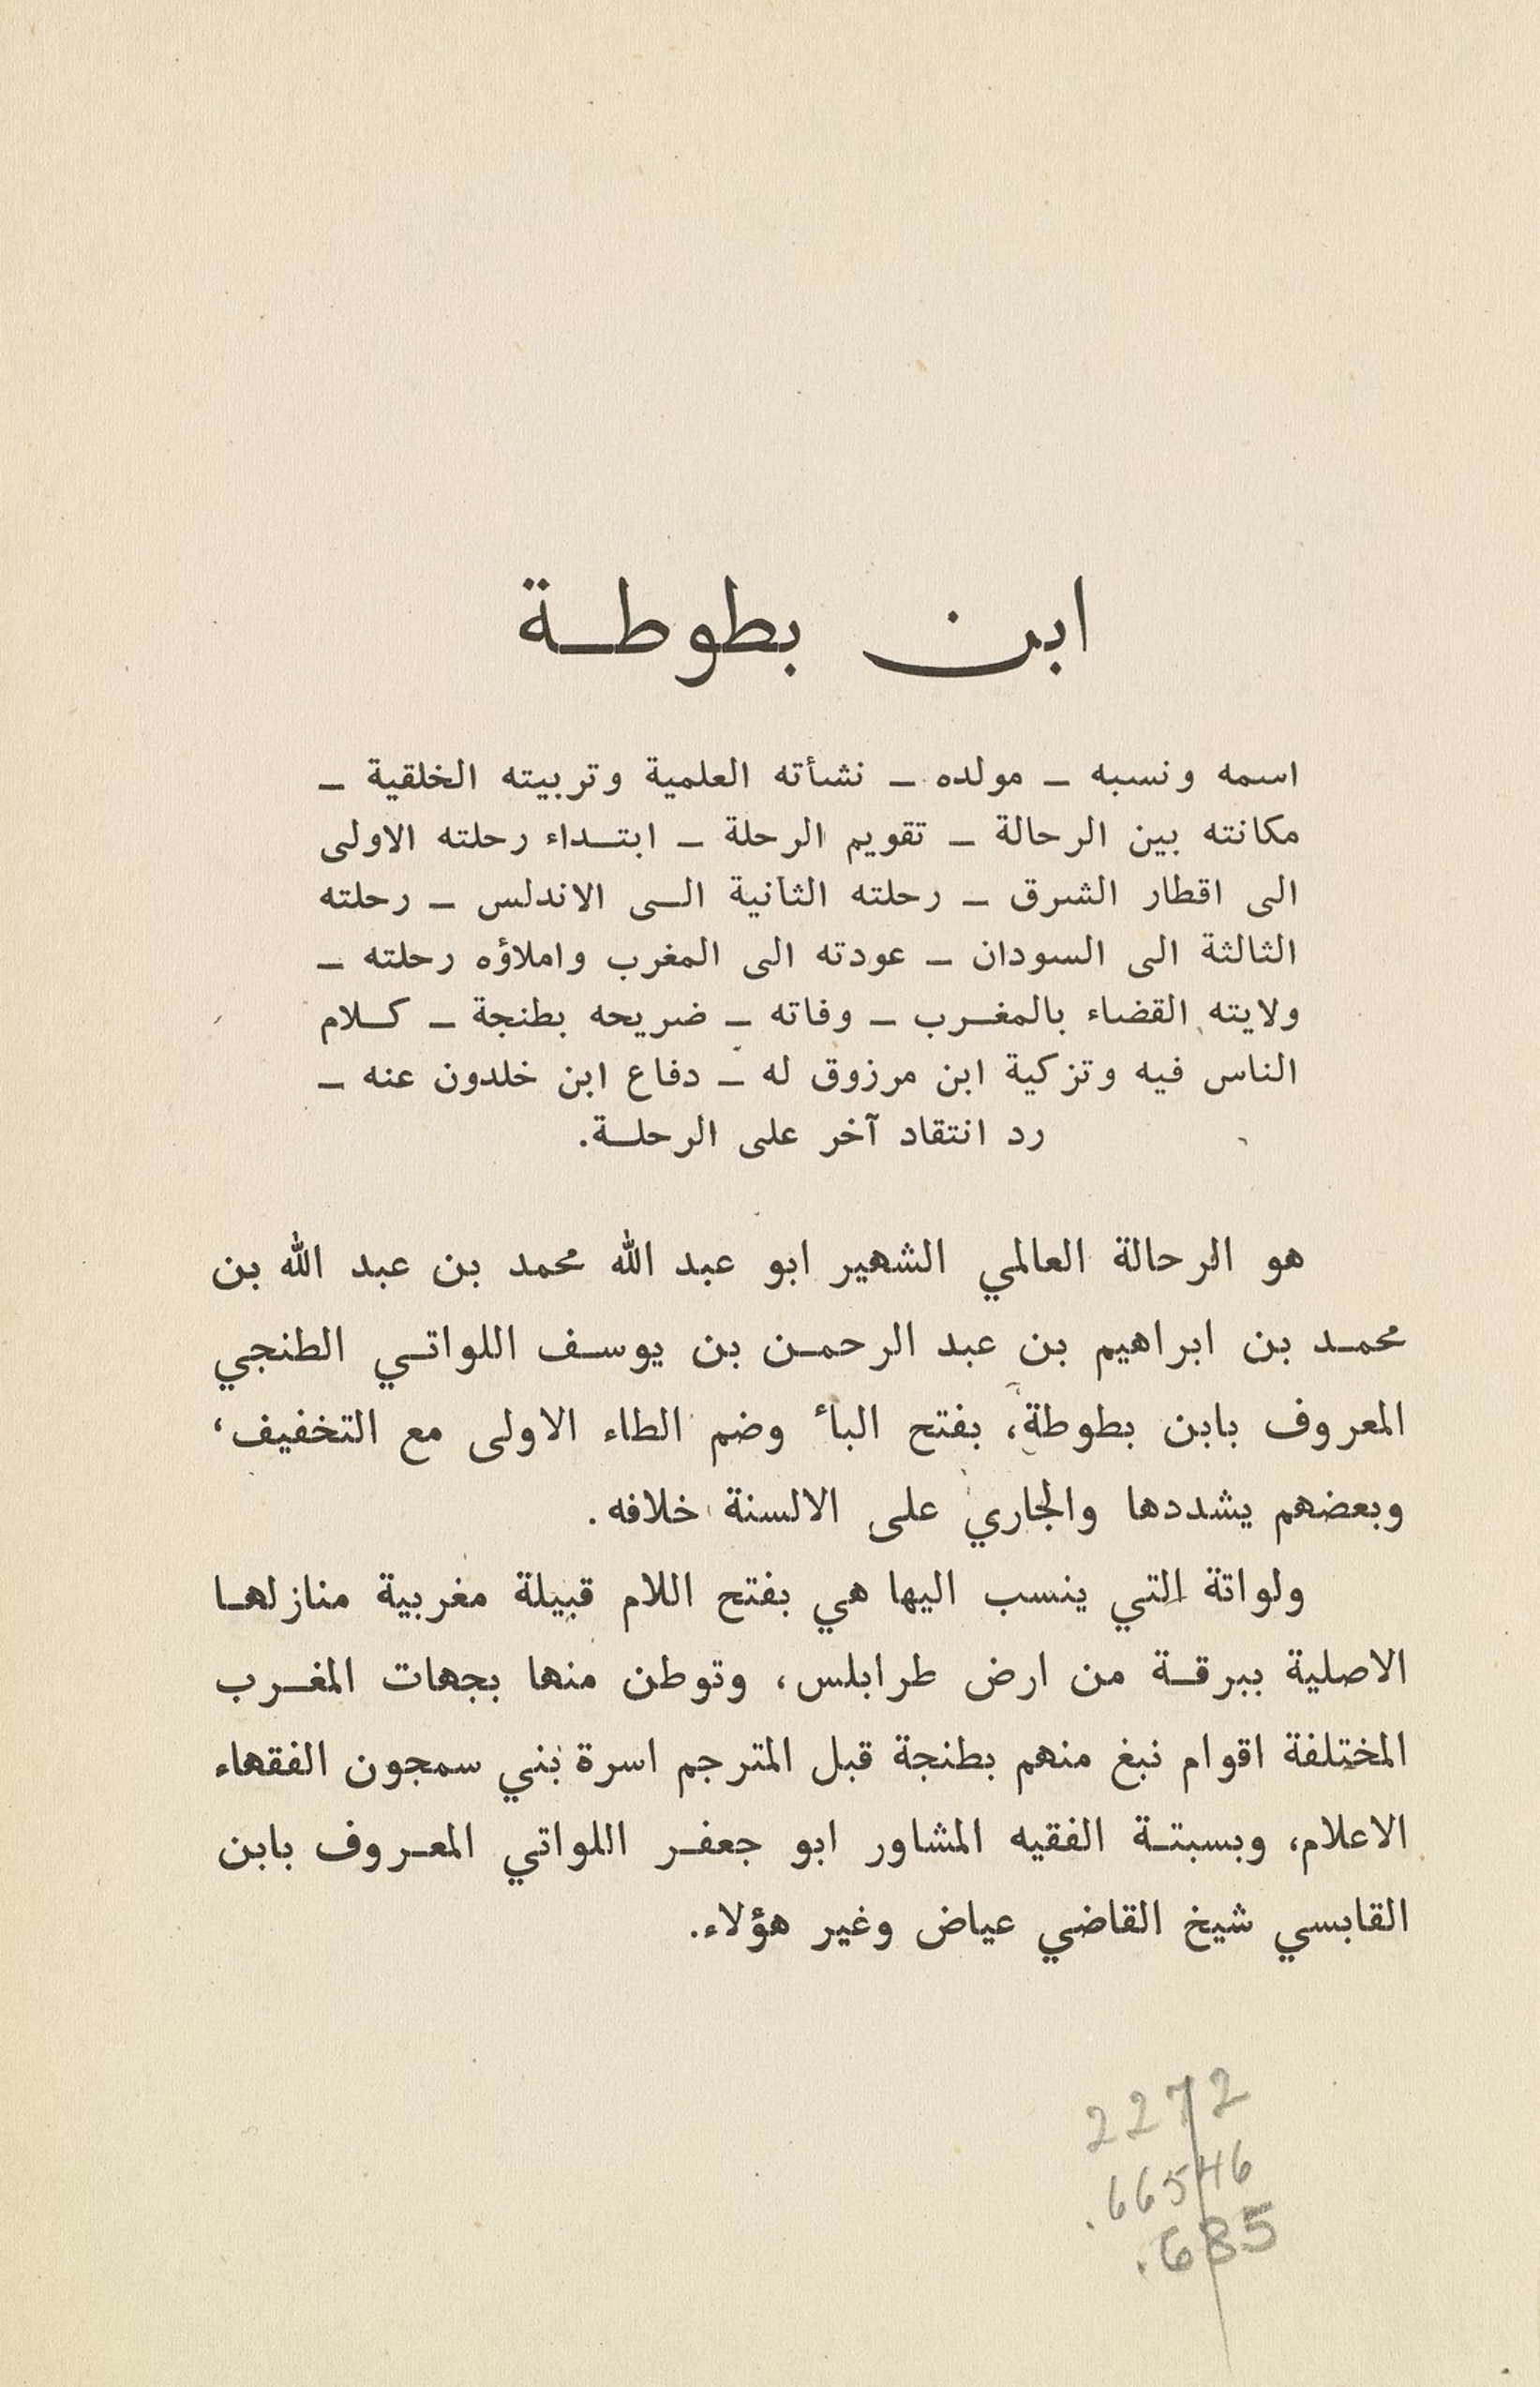 ابن بطوطة
اسمه ونسبه – مولده – نشأته العلمية وتربيته الخلقية –
مكانته بين الرحالة – تقويم الرحلة – ابتداء رحلته الاولى
الى اقطار الشرق – رحلته الثانية الى الاندلس – رحلته
الثالثة الى السودان – عودته الى المغرب واملاؤه رحلته –
ولايته القضاء بالمغرب – وفاته – ضريحه بطنجة – كلام
الناس فيه وتزكية ابن مرزوق له – دفاع ابن خلدون عنه –
رد انتقاد آخر على الرحلة.
هو الرحالة العالمي الشهير ابو عبد الله محمد بن عبد الله بن
محمد بن ابراهيم بن عبد الرحمن بن يوسف اللواتي الطنجي
المعروف بابن بطوطة، بفتح البأ وضم الطاء الاولى مع التخفيف،
وبعضهم يشددها والجاري على الالسنة خلافه.
ولواتة التي ينسب اليها هي بفتح اللام قبيلة مغربية منازلها
الاصلية ببرقة من ارض طرابلس، وتوطن منها بجهات المغرب
المختلفة اقوام نبغ منهم بطنجة قبل المترجم اسرة بني سمجون الفقهاء
الاعلام، وبسبتة الفقيه المشاور ابو جعفر اللواتي المعروف بابن
القابسي شيخ القاضي عياض وغير هؤلاء.
2272
.66546
.685